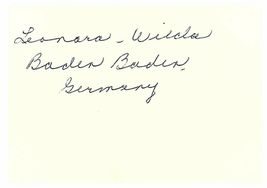 Leonara - Wilda
Baden Baden,
Germany